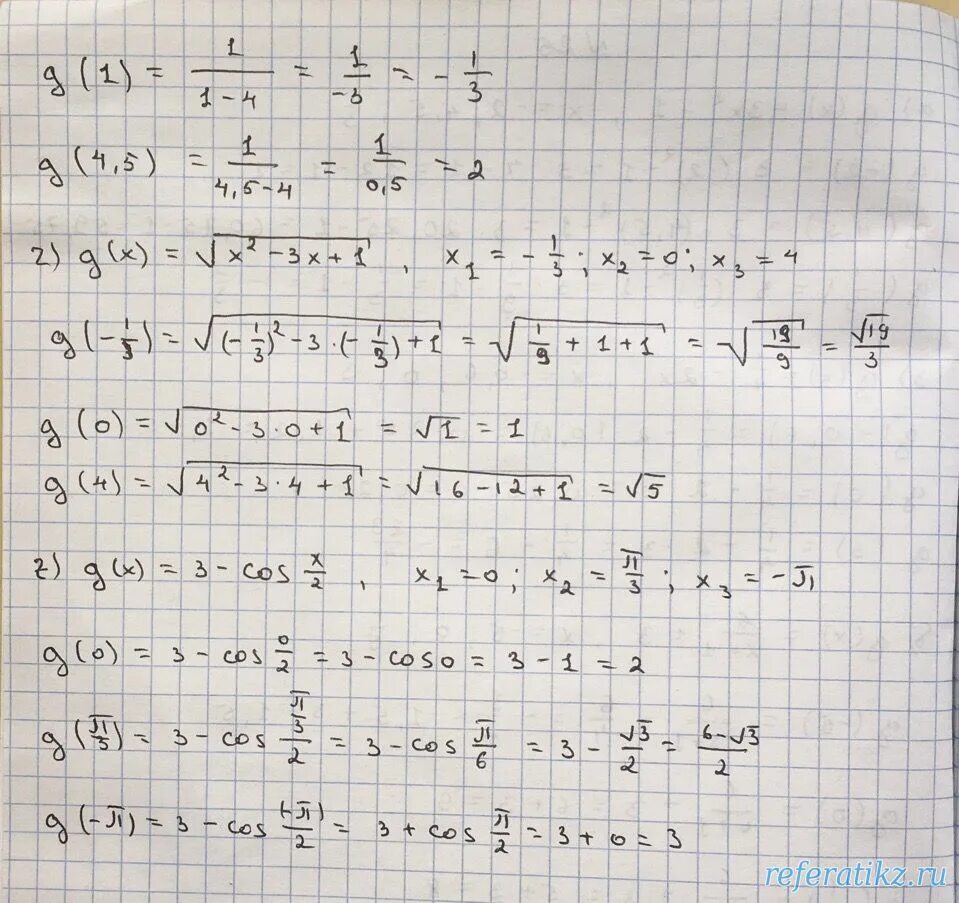 g(1) = 1/(1-4) = 1/-3 = -1/3
g(4,5) = 1/(4,5-4) = 1/0,5 = 2
г) g(x) = √(x² - 3x + 1) , x₁ = -1/3; x₂ = 0; x₃ = 4
g(-1/3) = √((-1/3)² - 3·(-1/3) + 1) = √(1/9 + 1 + 1) = √(19/9) = √19/3
g(0) = √(0² - 3·0 + 1) = √1 = 1
g(4) = √(4² - 3·4 + 1) = √(16 - 12 + 1) = √5
г) g(x) = 3 - cos x/2 , x₁ = 0; x₂ = π/3; x₃ = -π
g(0) = 3 - cos 0/2 = 3 - cos0 = 3 - 1 = 2
g(π/3) = 3 - cos (π/3)/2 = 3 - cos π/6 = 3 - √3/2 = (6-√3)/2
g(-π) = 3 - cos (-π)/2 = 3 + cos π/2 = 3 + 0 = 3
referatikz.ru